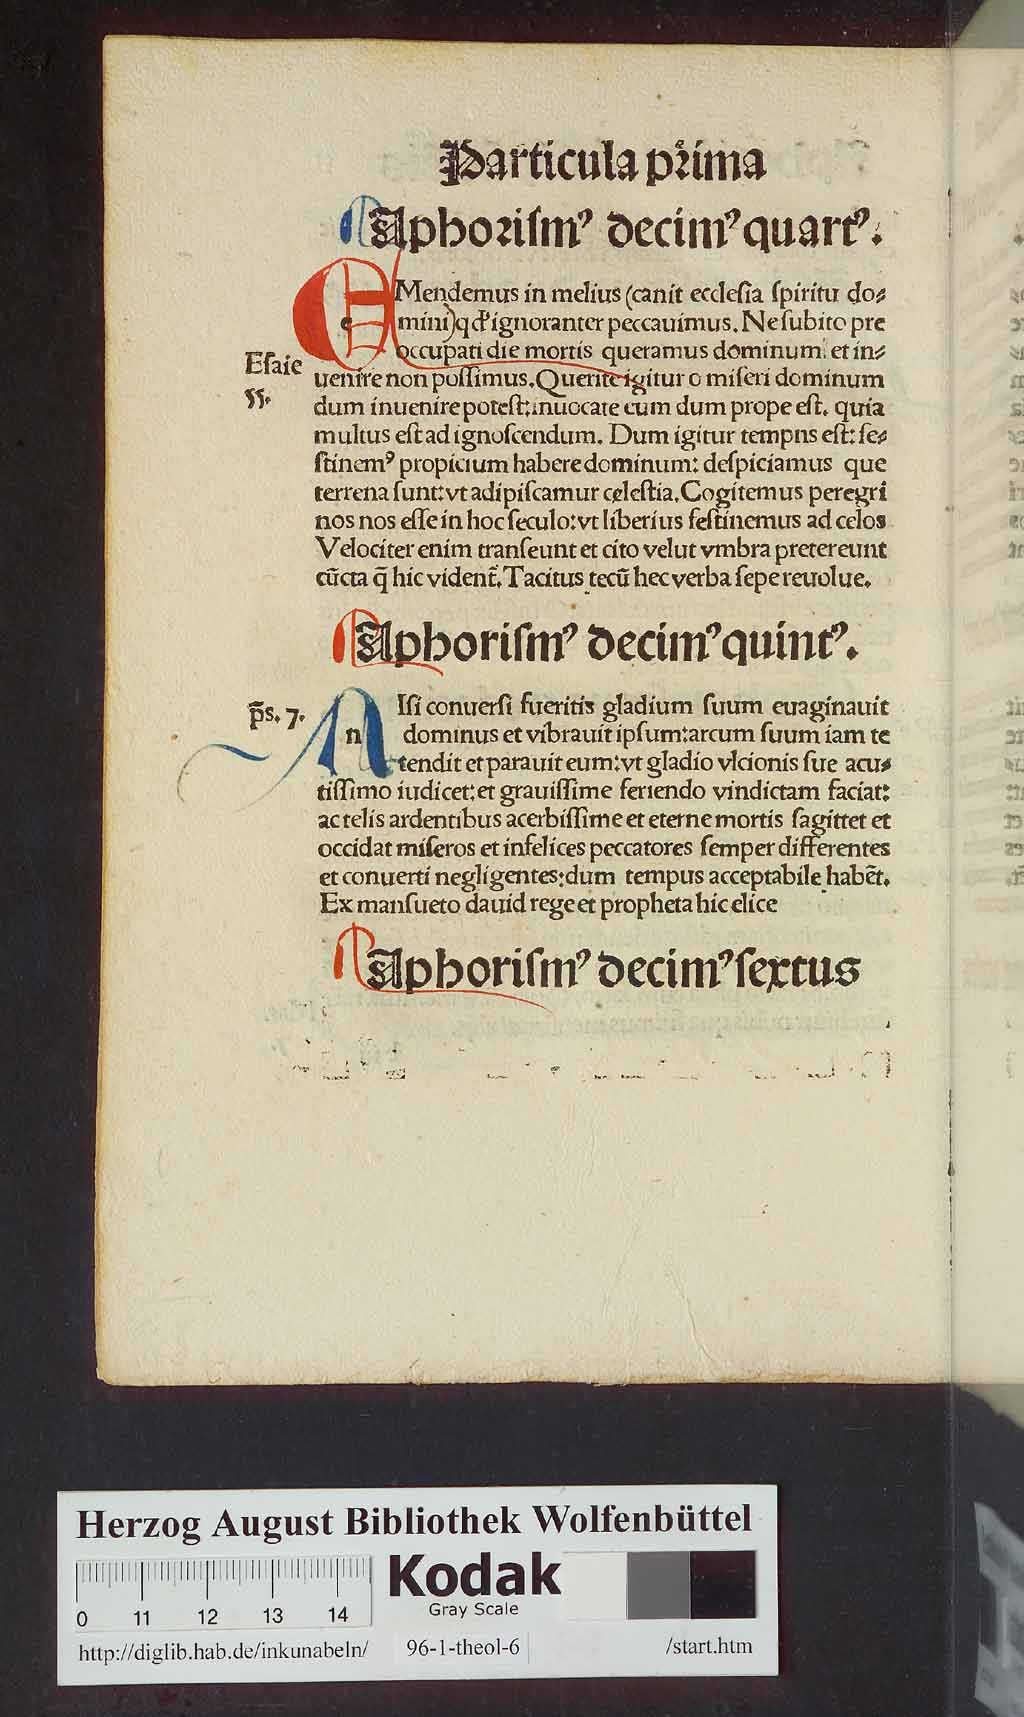 Particula prima
Aphorism⁹ decim⁹ quart⁹.
EMendemus in melius (canit ecclesia spiritu do⸗
mini) qď ignoranter peccauimus. Ne subito pre
occupati die mortis queramus dominum: et in⸗
uenire non possimus. Querite igitur o miseri dominum
Esaie
55.
dum inuenire potest: inuocate eum dum prope est. quia
multus est ad ignoscendum. Dum igitur tempns est: fe⸗
stinem⁹ propicium habere dominum: despiciamus que
terrena sunt: vt adipiscamur celestia. Cogitemus peregri
nos nos esse in hoc seculo: vt liberius festinemus ad celos
Velociter enim transeunt et cito velut vmbra pretereunt
cūcta q̄ hic vident̄. Tacitus tecū hec verba sepe reuolue.
Aphorism⁹ decim⁹ quint⁹.
p̄s. 7.
nIsi conuersi fueritis gladium suum euaginauit
dominus et vibrauit ipsum: arcum suum iam te
tendit et parauit eum: vt gladio vlcionis sue acu⸗
tissimo iudicet: et grauissime feriendo vindictam faciat:
ac telis ardentibus acerbissime et eterne mortis sagittet et
occidat miseros et infelices peccatores semper differentes
et conuerti negligentes: dum tempus acceptabile habēt.
Ex mansueto dauid rege et propheta hic elice
Aphorism⁹ decim⁹ sextus
Herzog August Bibliothek Wolfenbüttel
Kodak
Gray Scale
0 11 12 13 14
http://diglib.hab.de/inkunabeln/ 96-1-theol-6 /start.htm